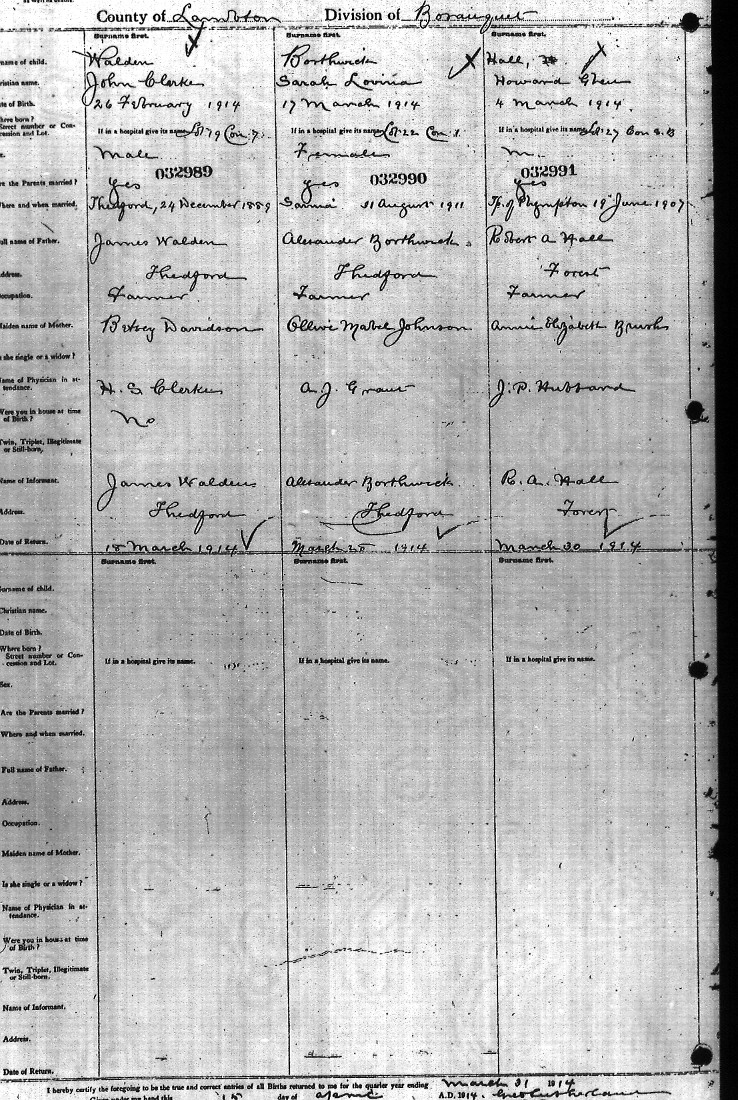 County of Lambton Division of Bosanquet
Surname first. Surname first. Surname first.
name of child. Walden Borthwick Hall,
ristian name. John Clerke Sarah Lovina Howard Glen
te of Birth. 26 February 1914 17 March 1914 4 March 1914.
here born?
Street number or Con-
cession and Lot. If in a hospital give its name. Lot 79 Con. 7. If in a hospital give its name. Lot 22 Con. 1. If in a hospital give its name. Lot 27 Con S.B
x. Male Female M.
032989 032990 032991
re the Parents married? yes yes yes
here and when married. Thedford, 24 December 1889 Sarnia 11 August 1911 Tp. of Plympton 19 June 1907
ull name of Father. James Walden Alexander Borthwick. Robert A Hall
ddress. Thedford Thedford Forest
ccupation. Farmer Farmer Farmer
aiden name of Mother. Betsey Davidson Ollive Mabel Johnson Annie Elizabeth Brush
she single or a widow?
ame of Physician in at-
tendance. H. S. Clerke A. J. Grant J. P. Hubbard
Were you in house at time
of Birth? No
Twin, Triplet, Illegitimate
or Still-born,
Name of Informant. James Walden Alexander Borthwick. R. A. Hall
Address. Thedford Thedford Forest
Date of Return. 18 March 1914 March 28 1914 March 30 1914
Surname first. Surname first. Surname first.
Surname of child.
Christian name.
Date of Birth.
Where born?
Street number or Con-
cession and Lot. If in a hospital give its name. If in a hospital give its name. If in a hospital give its name.
Sex.
Are the Parents married?
Where and when married.
Full name of Father.
Address.
Occupation.
Maiden name of Mother.
Is she single or a widow?
Name of Physician in at-
tendance.
Were you in house at time
of Birth?
Twin, Triplet, Illegitimate
or Still-born.
Name of Informant.
Address.
Date of Return.
I hereby certify the foregoing to be the true and correct entries of all Births returned to me for the quarter year ending March 31 1914
Given under my hand this 15 day of April A.D. 1914. Geo Sutherland